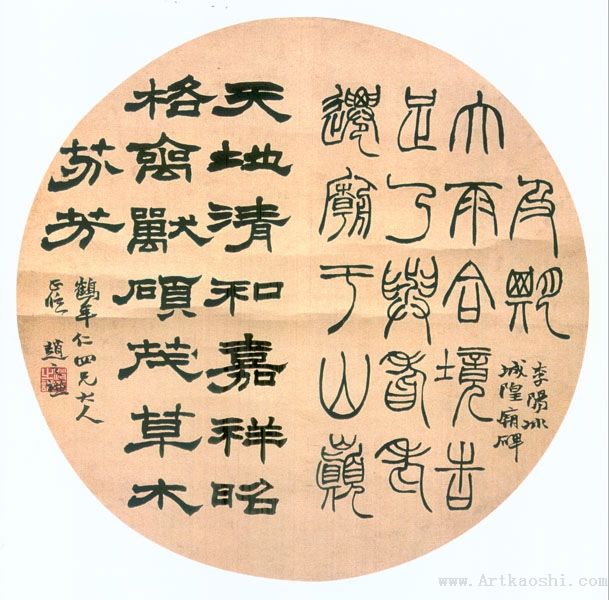 及期
李陽冰
城隍廟碑
大雨合境告
足乃與耆老
遷廟于山巔
天地清和嘉祥昭
格禽獸碩茂草木
芬芳
鶴年仁四兄大人
正 趙之謙
www.Artkaoshi.com